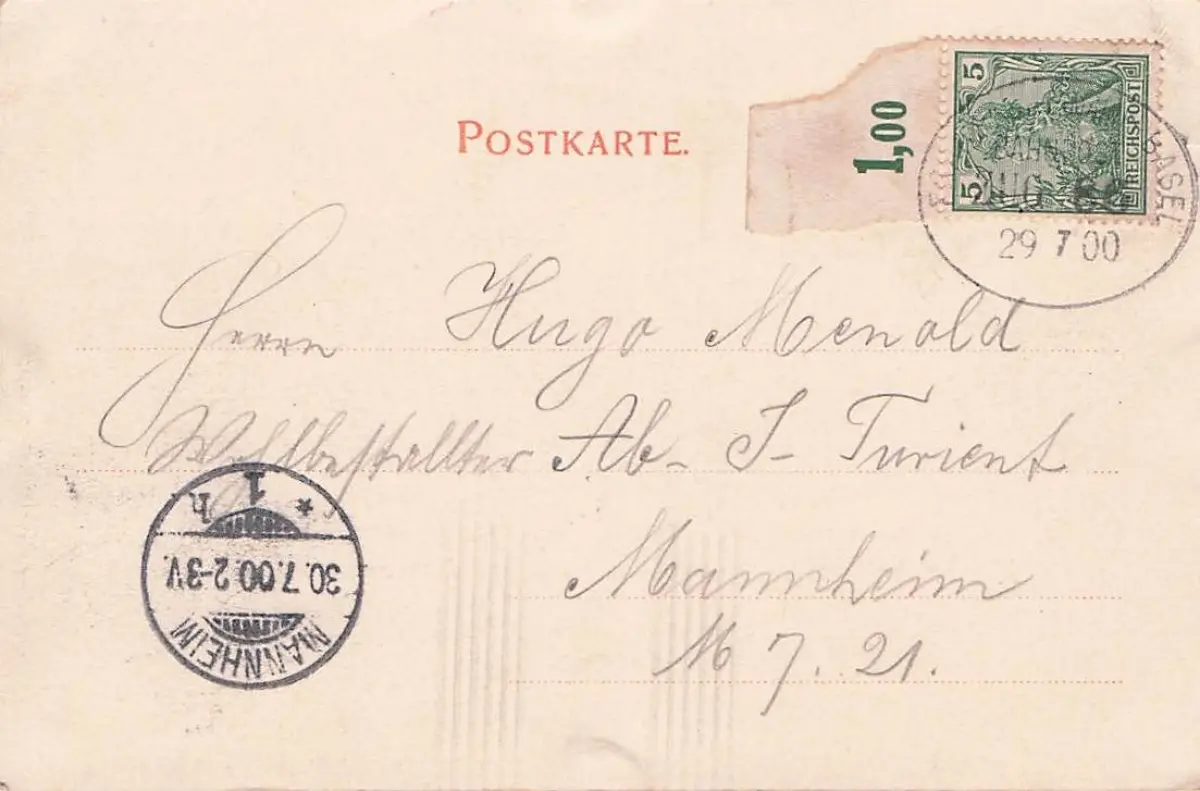 POSTKARTE.
1,00
5 5
REICHSPOST
BASEL
ZUG
29 7 00
Herrn Hugo Menold
Wohlbestallter Ab- I- Turient
Mannheim
M 7. 21.
* 1 h
30.7.00.2-3V.
MANNHEIM